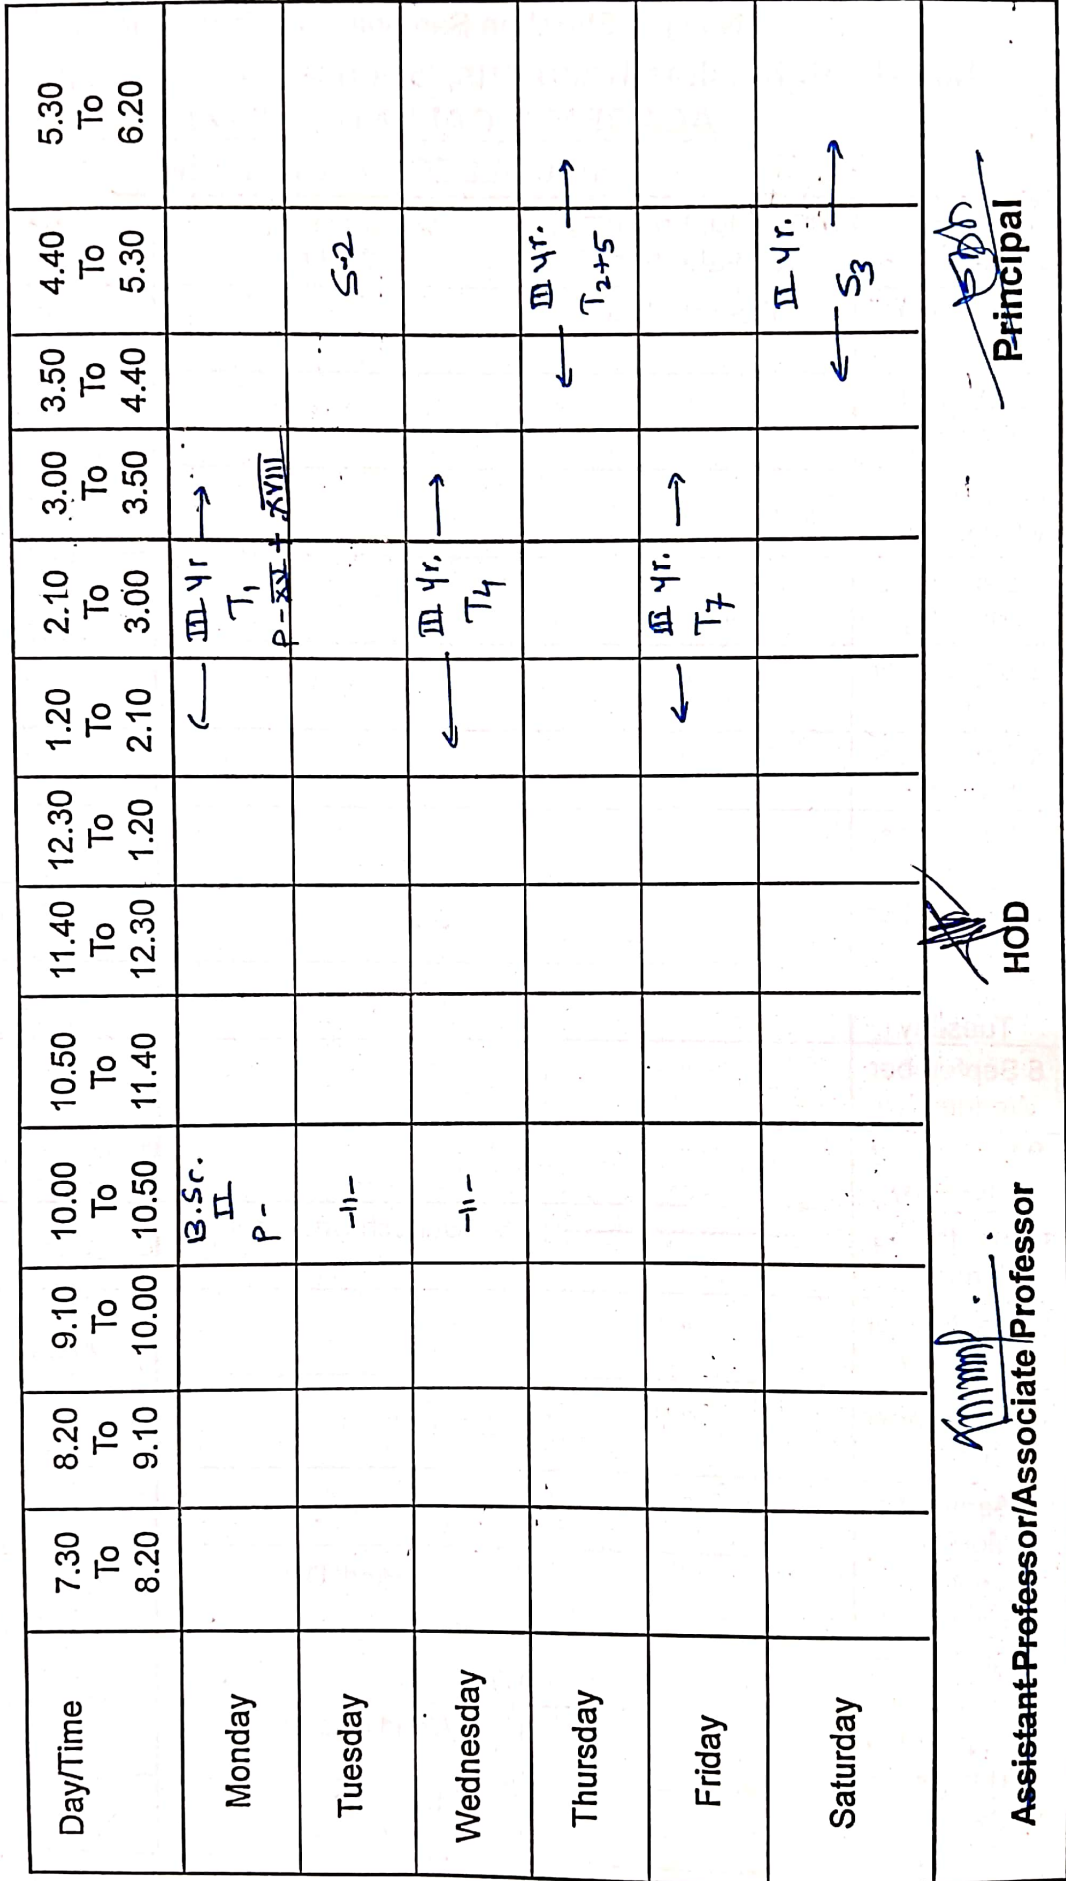 Day/Time
7.30 To 8.20
8.20 To 9.10
9.10 To 10.00
10.00 To 10.50
10.50 To 11.40
11.40 To 12.30
12.30 To 1.20
1.20 To 2.10
2.10 To 3.00
3.00 To 3.50
3.50 To 4.40
4.40 To 5.30
5.30 To 6.20
Monday
B.Sc.
II
P-
← III yr →
T1
P-XVI + XVIII
Tuesday
-11-
S-2
Wednesday
-11-
← III yr. →
T4
Thursday
← III yr. →
T2+5
Friday
← III yr. →
T7
Saturday
II yr.
← S3 →
Assistant Professor/Associate Professor
HOD
Principal